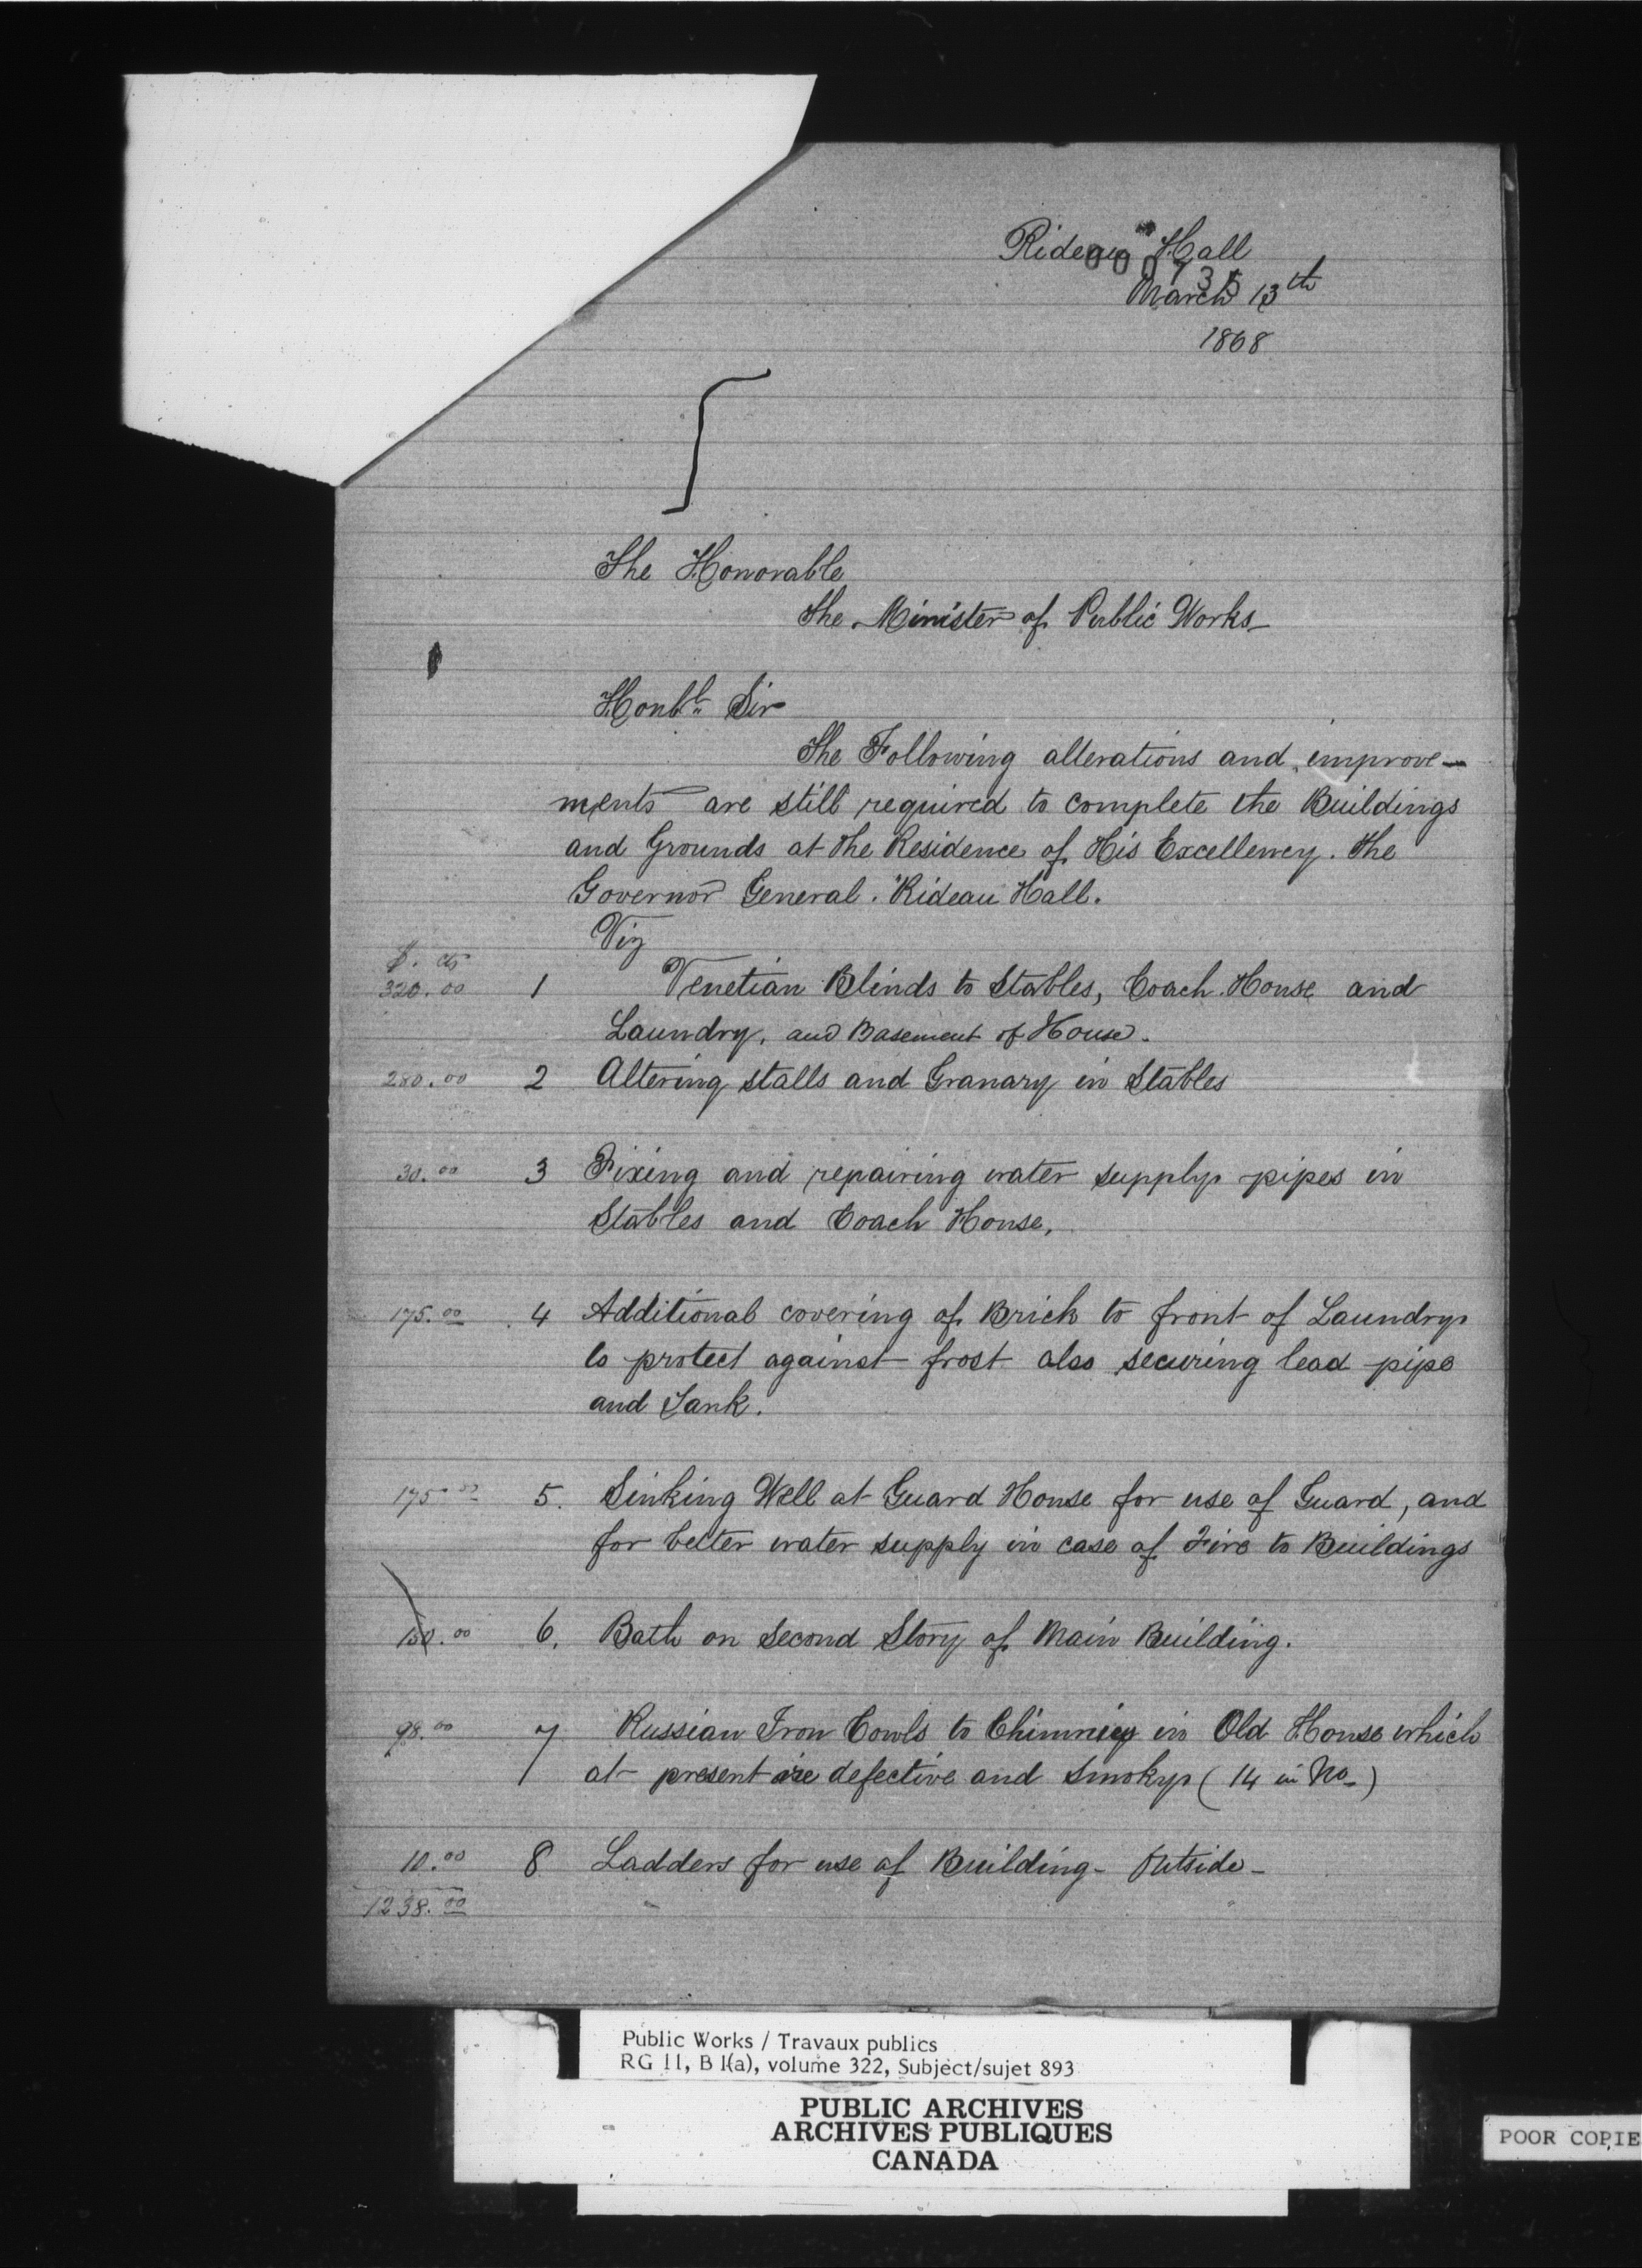 Rideau Hall
000735
March 13th
1868
The Honorable
the Minister of Public Works
Honbl. Sir
The Following alterations and improve-
ments are still required to complete the Buildings
and Grounds at the Residence of His Excellency. the
Governor General. Rideau Hall.
Viz
$. cts
320.00 1 Venetian Blinds to Stables, Coach House and
Laundry, and Basement of House.
280.00 2 Altering stalls and Granary in Stables
30.00 3 Fixing and repairing water supply pipes in
Stables and Coach House,
175.00 4 Additional covering of Brick to front of Laundry
to protect against frost also securing lead pipe
and Tank.
175.00 5. Sinking Well at Guard House for use of Guard, and
for better water supply in case of Fire to Buildings
150.00 6. Bath on Second Story of Main Building.
98.00 7 Russian Iron Cowls to Chimnies in Old House which
at present are defective and Smoky (14 in No.)
10.00 8 Ladders for use of Building - Outside -
1238.00
Public Works / Travaux publics
RG 11, B 1(a), volume 322, Subject/sujet 893
PUBLIC ARCHIVES
ARCHIVES PUBLIQUES
CANADA
POOR COPIE